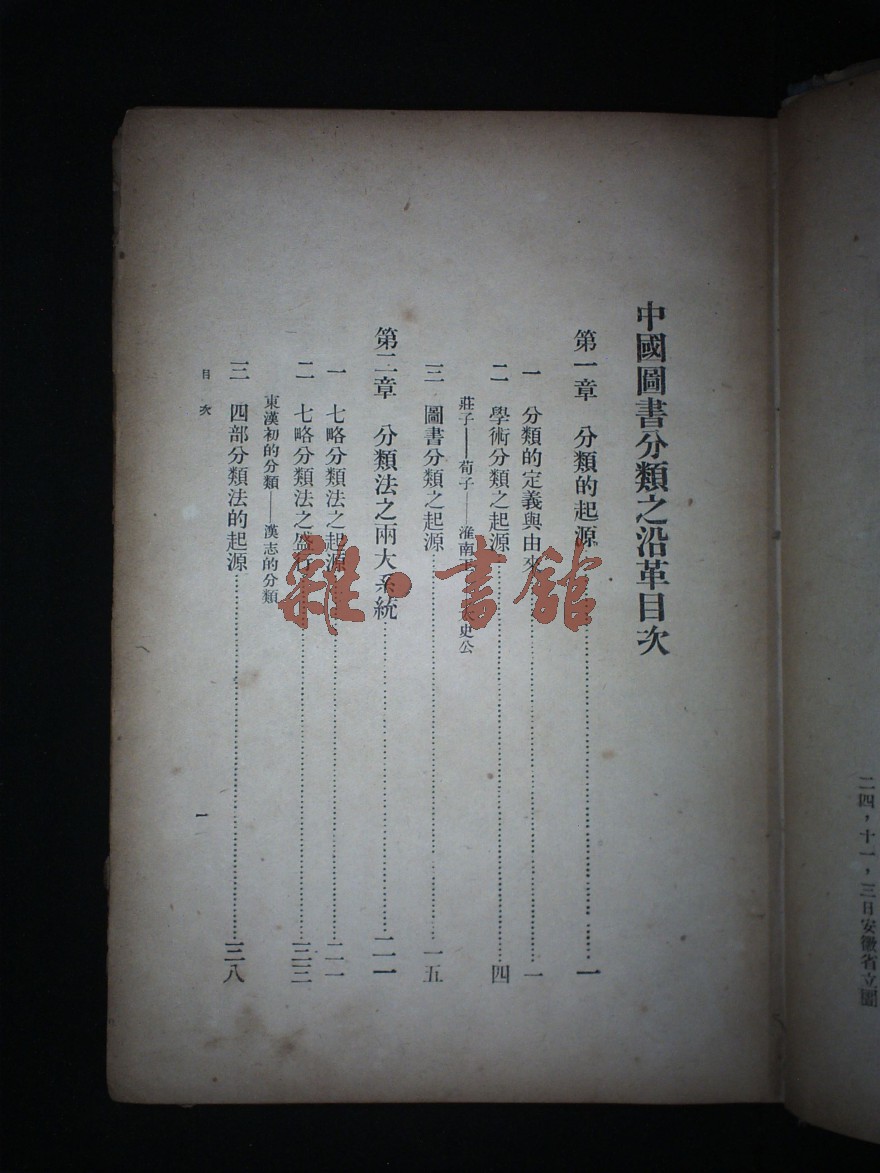 二四，十一，三日安徽省立圖
中國圖書分類之沿革目次
第一章 分類的起源……一
一 分類的定義與由來……一
二 學術分類之起源……四
莊子——荀子——淮南 太史公
三 圖書分類之起源……一五
第二章 分類法之兩大系統……二一
一 七略分類法之起源……二一
二 七略分類法之盛行……三三
東漢初的分類——漢志的分類
三 四部分類法的起源……三八
目次
一
雜·書館